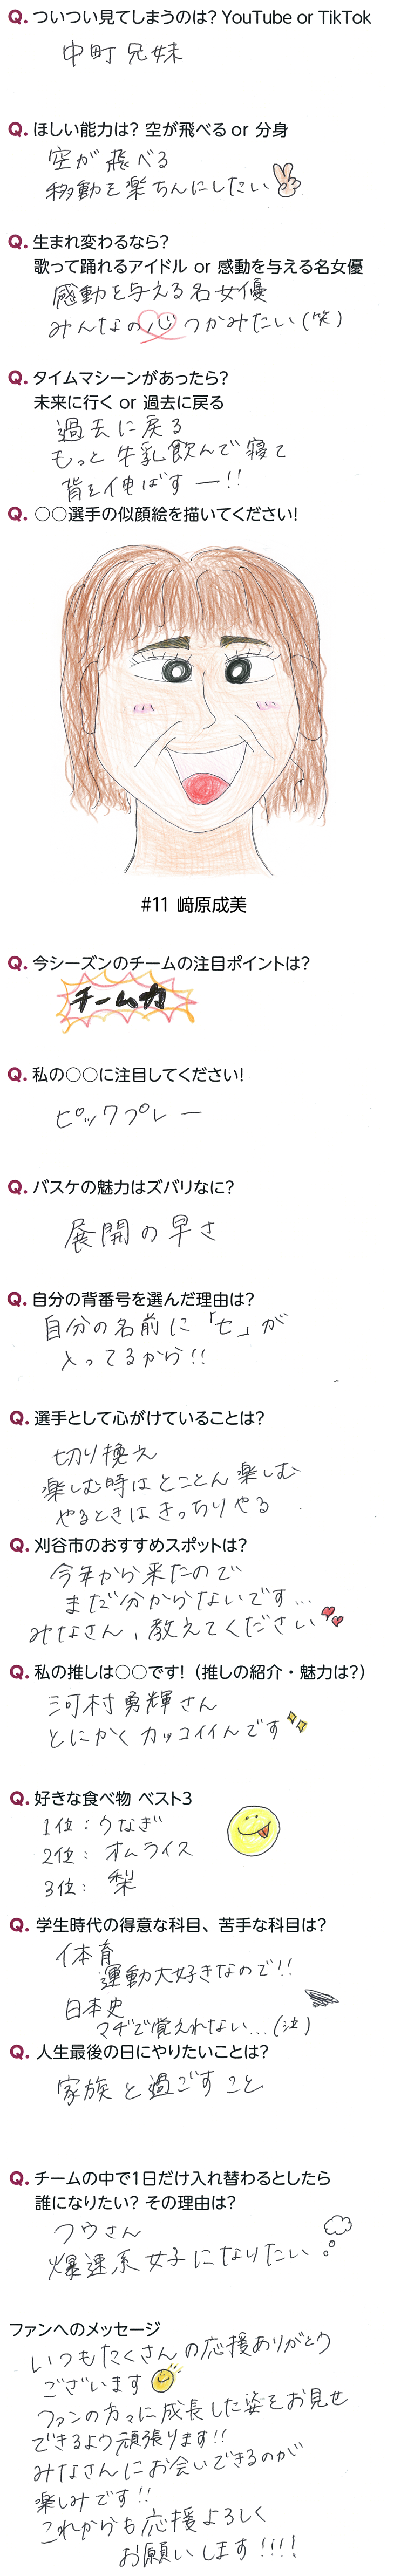 Q. ついつい見てしまうのは? YouTube or TikTok
中町兄妹
Q. ほしい能力は? 空が飛べる or 分身
空が飛べる
移動を楽ちんにしたい
Q. 生まれ変わるなら?
歌って踊れるアイドル or 感動を与える名女優
感動を与える名女優
みんなの心つかみたい(笑)
Q. タイムマシーンがあったら?
未来に行く or 過去に戻る
過去に戻る
もっと牛乳飲んで寝て
背を伸ばすー!!
Q. ○○選手の似顔絵を描いてください!
#11 﨑原成美
Q. 今シーズンのチームの注目ポイントは?
チーム力
Q. 私の○○に注目してください!
ピックプレー
Q. バスケの魅力はズバリなに?
展開の早さ
Q. 自分の背番号を選んだ理由は?
自分の名前に「七」が
入ってるから!!
Q. 選手として心がけていることは?
切り換え
楽しむ時はとことん楽しむ
やるときはきっちりやる
Q. 刈谷市のおすすめスポットは?
今年から来たので
まだ分からないです...
みなさん、教えてください
Q. 私の推しは○○です! (推しの紹介・魅力は?)
河村勇輝さん
とにかくカッコイイんです
Q. 好きな食べ物 ベスト3
1位:うなぎ
2位:オムライス
3位:梨
Q. 学生時代の得意な科目、苦手な科目は?
体育
運動大好きなので!!
日本史
マヂで覚えれない...(泣)
Q. 人生最後の日にやりたいことは?
家族と過ごすこと
Q. チームの中で1日だけ入れ替わるとしたら
誰になりたい? その理由は?
フウさん
爆速系女子になりたい
ファンへのメッセージ
いつもたくさんの応援ありがとう
ございます
ファンの方々に成長した姿をお見せ
できるよう頑張ります!!
みなさんにお会いできるのが
楽しみです!!
これからも応援よろしく
お願いします!!!!